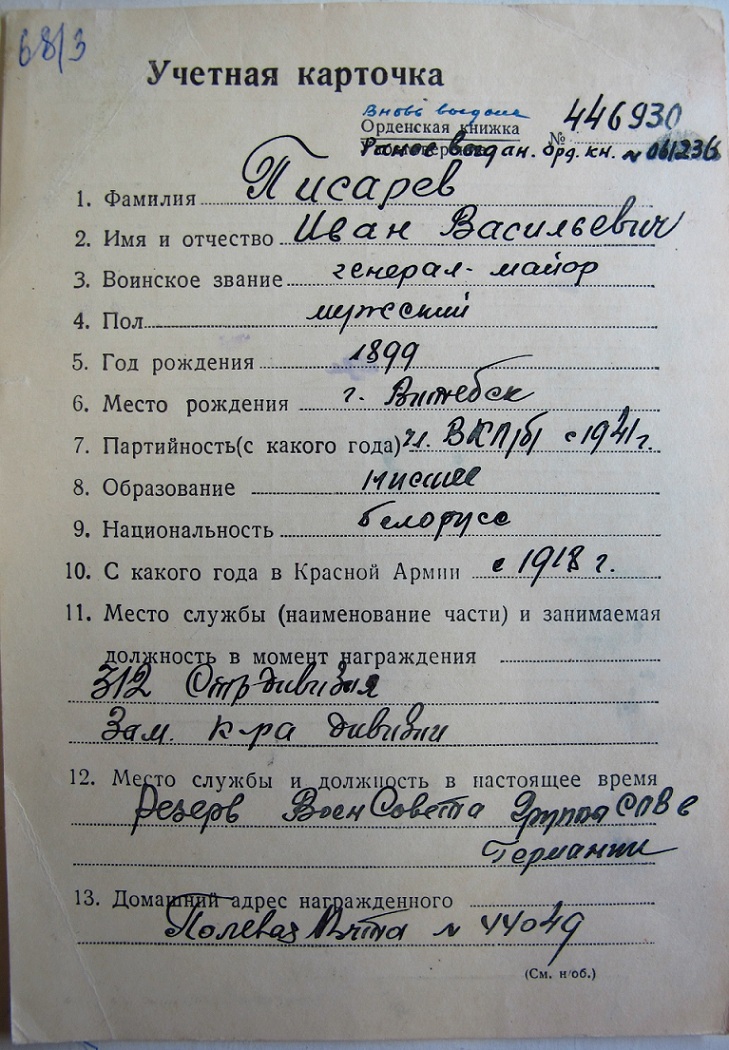 68/3
Учетная карточка
Вновь выдана
Орденская книжка № 446930
Ранее выдан. орд. кн. № 061236
1. Фамилия Писарев
2. Имя и отчество Иван Васильевич
3. Воинское звание генерал-майор
4. Пол мужской
5. Год рождения 1899
6. Место рождения г. Витебск
7. Партийность(с какого года) чл. ВКП/б/ с 1941 г.
8. Образование
9. Национальность белорусс
10. С какого года в Красной Армии с 1918 г.
11. Место службы (наименование части) и занимаемая
должность в момент награждения
312 Стр дивизия
Зам. к-ра дивизии
12. Место службы и должность в настоящее время
Резерв Воен Совета Группа СПВ в
Германии
13. Домашний адрес награжденного
Полевая Почта № 44049
(См. н/об.)